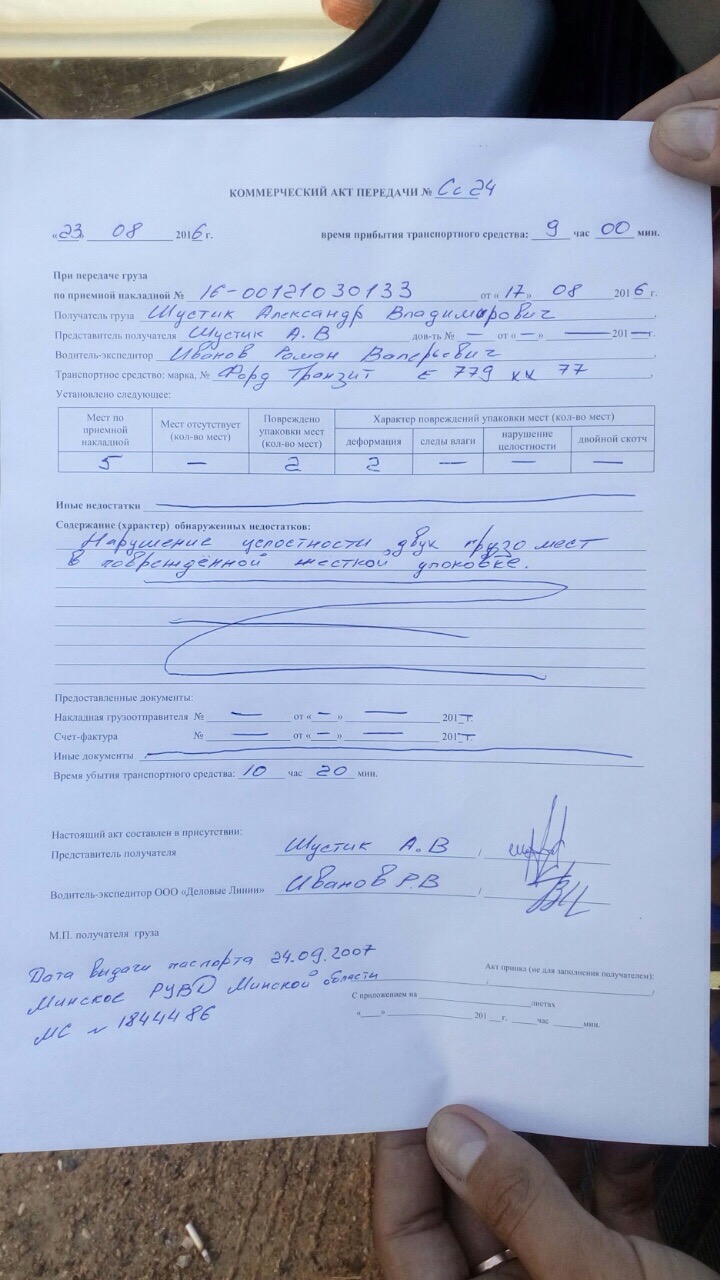 КОММЕРЧЕСКИЙ АКТ ПЕРЕДАЧИ № Сс 24
«23» 08 2016 г. время прибытия транспортного средства: 9 час 00 мин.
При передаче груза
по приемной накладной № 16-00121030133 от «17» 08 2016 г.
Получатель груза Шустик Александр Владимирович
Представитель получателя Шустик А.В дов-ть № — от «—» — 201— г.
Водитель-экспедитор Иванов Роман Валерьевич
Транспортное средство: марка, № Форд Транзит Е 779 кк 77
Установлено следующее:
Мест по приемной накладной Мест отсутствует (кол-во мест) Повреждено упаковки мест (кол-во мест) Характер повреждений упаковки мест (кол-во мест)
деформация следы влаги нарушение целостности двойной скотч
5 — 2 2 — — —
Иные недостатки
Содержание (характер) обнаруженных недостатков:
Нарушение целостности двух грузо мест
в повреждённой жесткой упоковке.
Предоставленные документы:
Накладная грузоотправителя № — от «—» — 201— г.
Счет-фактура № — от «—» — 201— г.
Иные документы
Время убытия транспортного средства: 10 час 20 мин.
Настоящий акт составлен в присутствии:
Представитель получателя Шустик А.В /
Водитель-экспедитор ООО «Деловые Линии» Иванов Р.В /
М.П. получателя груза
Дата выдачи паспорта 24.09.2007
Минское РУВД Минской области
МС № 1844486
Акт принял (не для заполнения получателем):
С приложением на ____ листах
«____» ____ 201__ г. ____ час ____ мин.